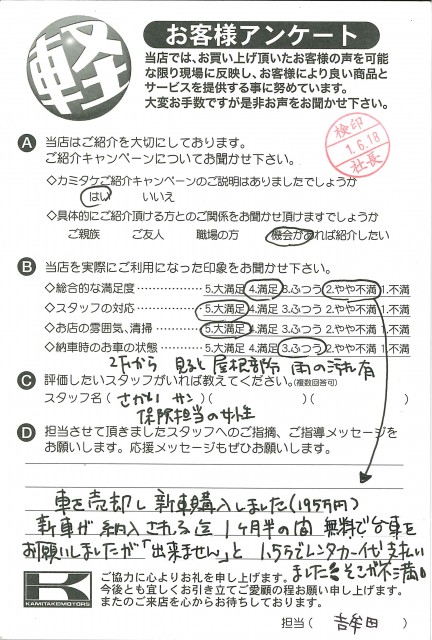 軽
お客様アンケート
当店では、お買い上げ頂いたお客様の声を可能
な限り現場に反映し、お客様により良い商品と
サービスを提供する事に努めています。
大変お手数ですが是非お声をお聞かせ下さい。
検印
1.6.18
社長
A 当店はご紹介を大切にしております。
ご紹介キャンペーンについてお聞かせ下さい。
◇カミタケご紹介キャンペーンのご説明はありましたでしょうか
はい いいえ
◇具体的にご紹介頂ける方とのご関係をお聞かせ頂けますでしょうか
ご親族 ご友人 職場の方 機会があれば紹介したい
B 当店を実際にご利用になった印象をお聞かせ下さい。
◇総合的な満足度 5.大満足 4.満足 3.ふつう 2.やや不満 1.不満
◇スタッフの対応 5.大満足 4.満足 3.ふつう 2.やや不満 1.不満
◇お店の雰囲気、清掃 5.大満足 4.満足 3.ふつう 2.やや不満 1.不満
◇納車時のお車の状態 5.大満足 4.満足 3.ふつう 2.やや不満 1.不満
2Fから 見ると 屋根部分 雨の汚れ有
C 評価したいスタッフがいれば教えてください。(複数回答可)
スタッフ名 ( さかい サン )( )( )
保険担当の女性
D 担当させて頂きましたスタッフへのご指摘、ご指導メッセージを
お願いします。応援メッセージもぜひお願いします。
車を売却し 新車購入しました(195万円)
新車が 納入される迄 1ヶ月半の間 無料で台車を
お願いしましたが「出来ません」と 1.5万でレンタカー代支払い
ました。そこが不満。
K
KAMITAKEMOTORS
ご協力に心よりお礼を申し上げます。
今後とも宜しくお引き立てご愛顧の程お願い申し上げます。
またのご来店を心からお待ちしております。
担当 ( 吉牟田 )